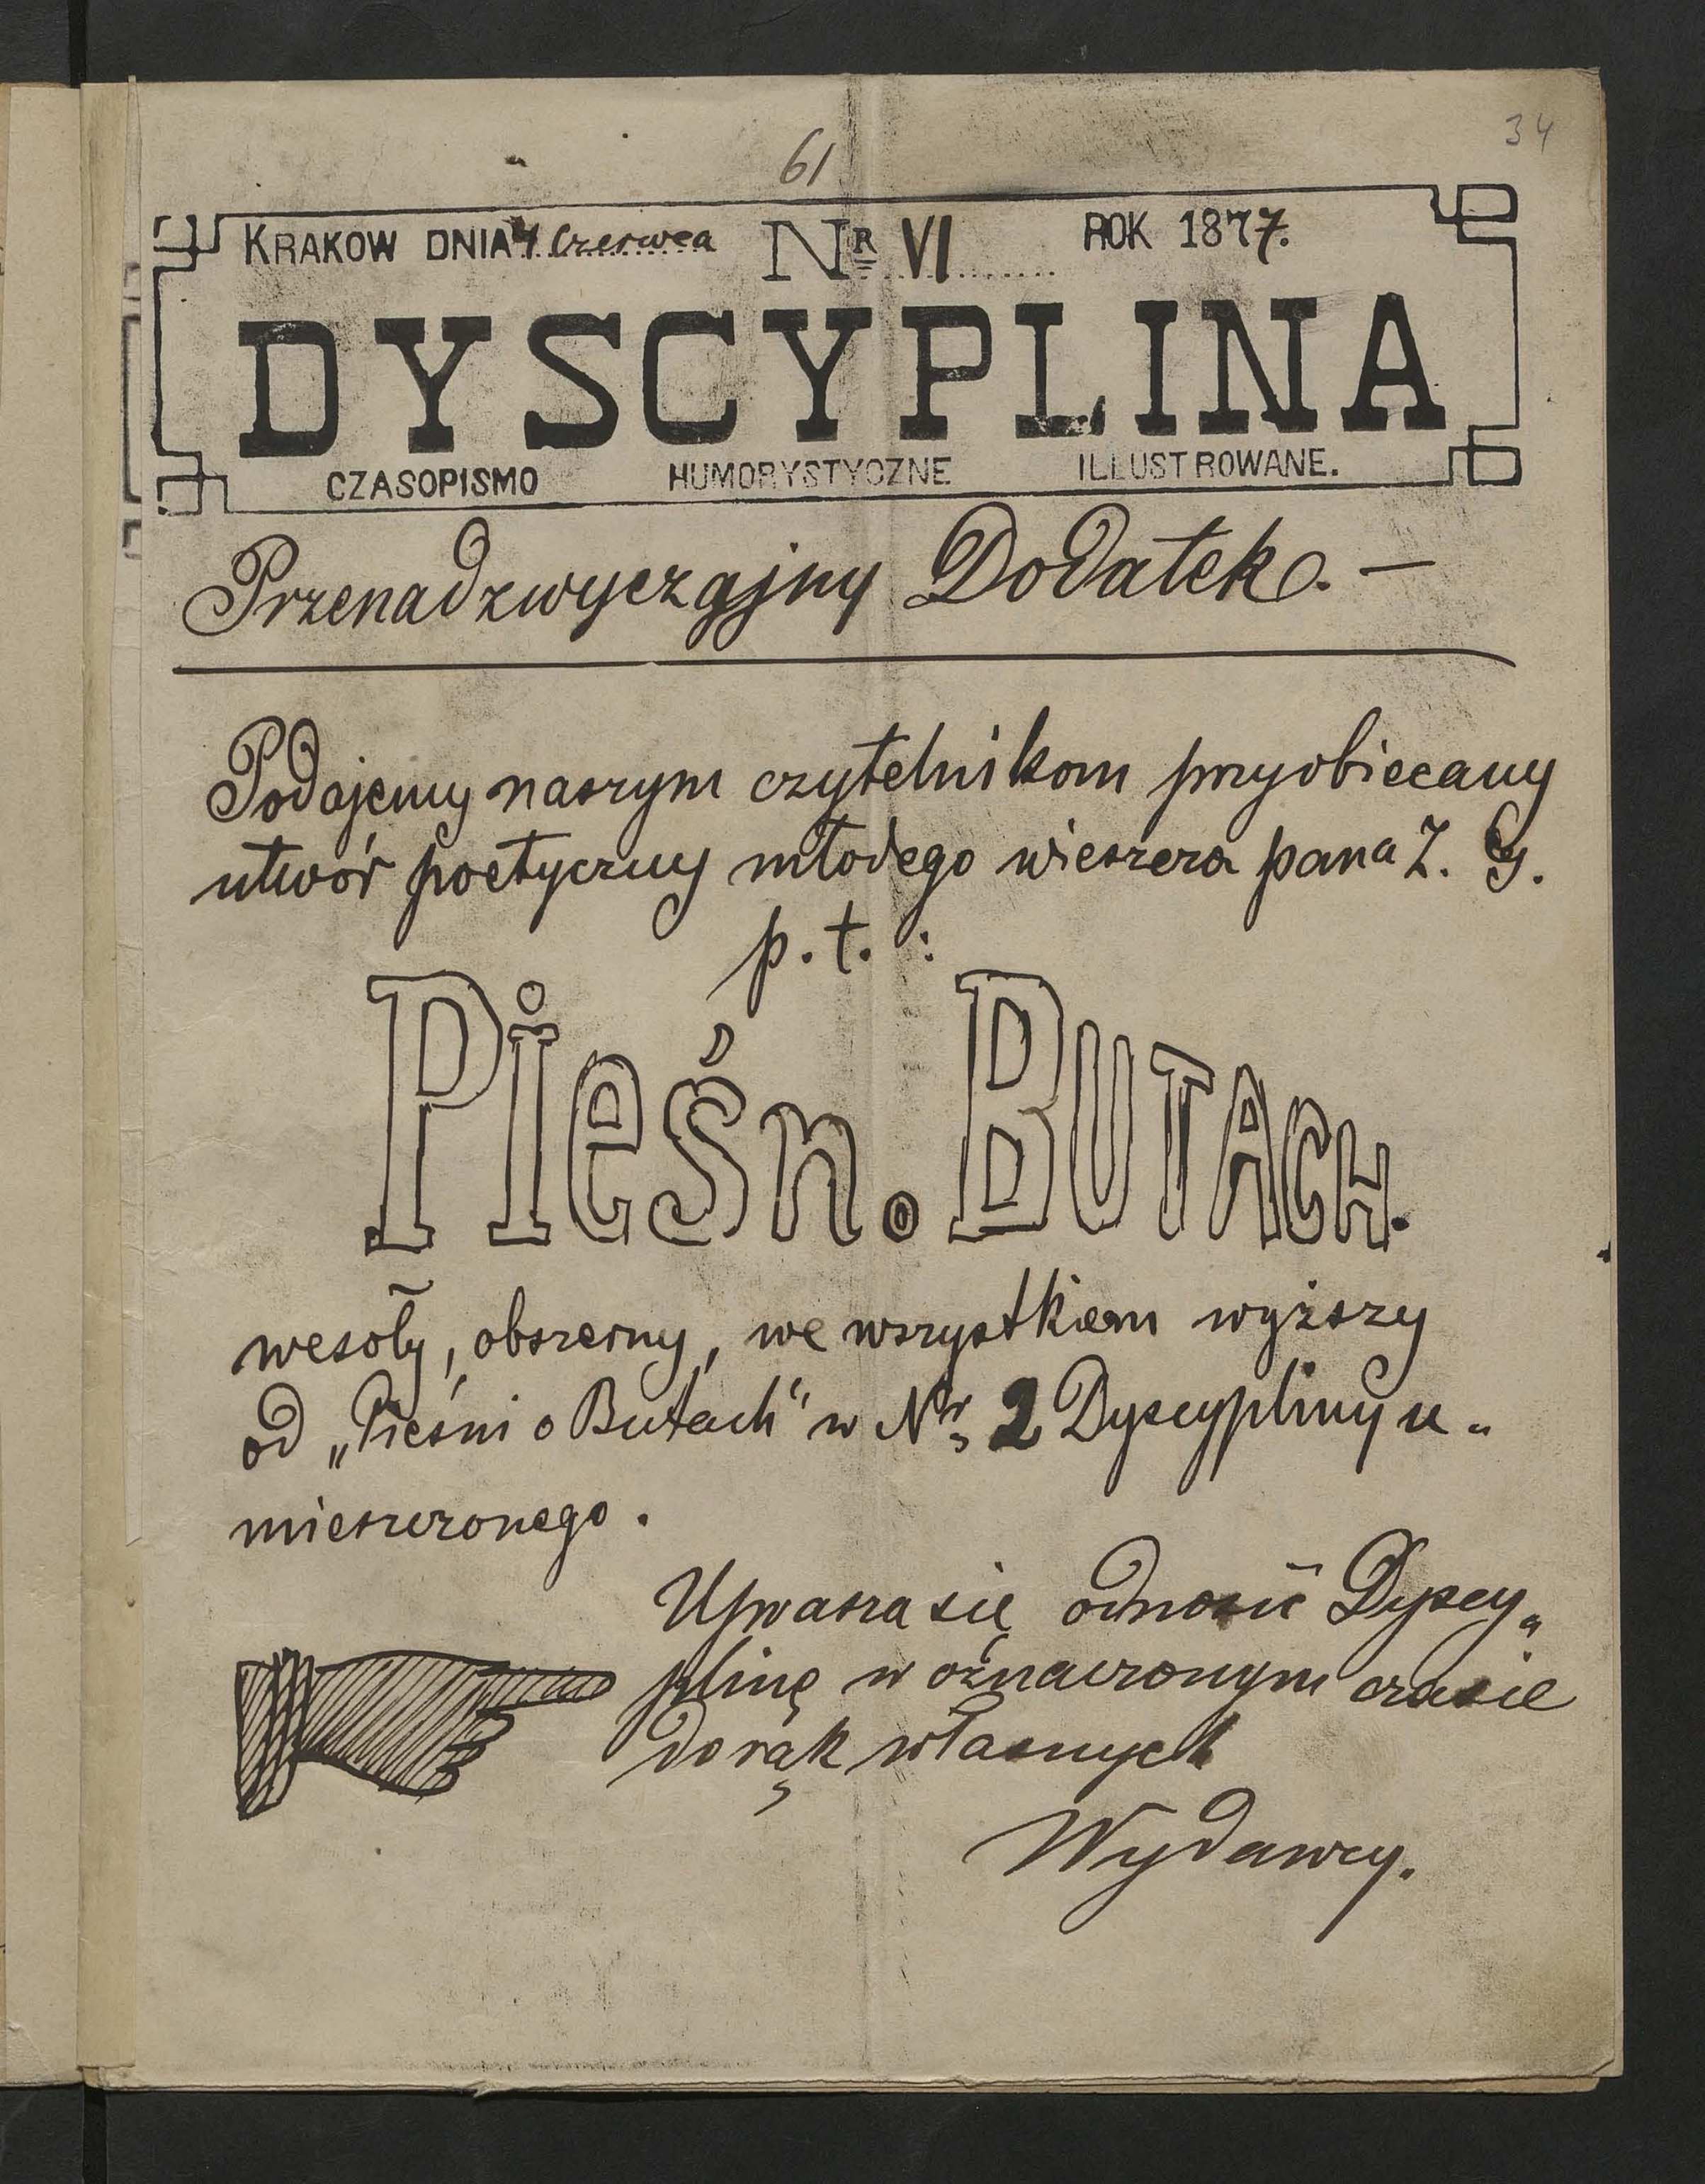 34
61
KRAKOW DNIA 4 Czerwca Nr VI ROK 1877.
DYSCYPLINA
CZASOPISMO HUMORYSTYCZNE ILLUSTROWANE.
Przenadzwyczajny Dodatek. —
Podajemy naszym czytelnikom przyobiecany
utwór poetyczny młodego wieszcza pana Z. G.
p. t. :
Pieśń. o BUTACH.
wesoły, obszerny, we wszystkiem wyższy
od „Pieśni o Butach" w Nr. 2 Dyscypliny u-
mieszczonego.
Uprasza się odnosić Dyscy-
plinę w oznaczonym czasie
do rąk własnych
Wydawcy.